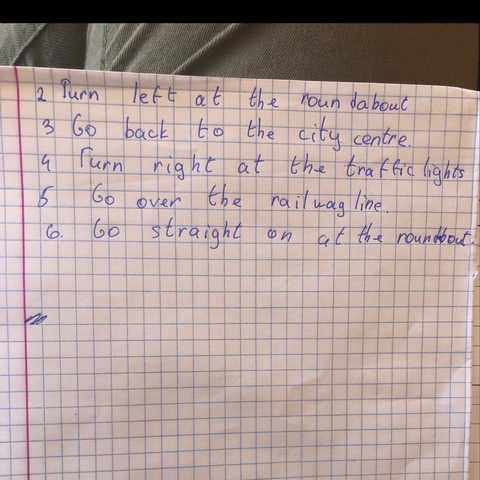 2 Turn left at the roundabout
3 Go back to the city centre.
4 Turn right at the traffic lights
5 Go over the railwag line.
6. Go straight on at the roundbout.